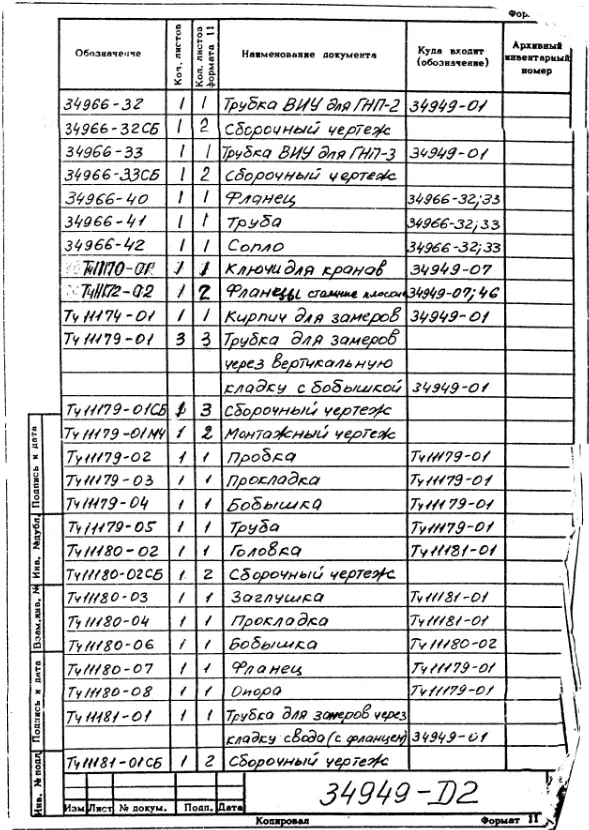 Фор.
Обозначение | Кол. листов | Кол. листов формата 11 | Наименование документа | Куда входит (обозначение) | Архивный инвентарный номер
34966-32 | 1 | 1 | Трубка ВИУ для ГНП-2 | 34949-01
34966-32СБ | 1 | 2 | Сборочный чертеж
34966-33 | 1 | 1 | Трубка ВИУ для ГНП-3 | 34949-01
34966-33СБ | 1 | 2 | Сборочный чертеж
34966-40 | 1 | 1 | Фланец | 34966-32;33
34966-41 | 1 | 1 | Труба | 34966-32;33
34966-42 | 1 | 1 | Сопло | 34966-32;33
1 | 1 | Ключи для кранов | 34949-07
1 | 2 | Фланецы стальные плоские | 34949-07;46
Ту 11174-01 | 1 | 1 | Кирпич для замеров | 34949-01
Ту 11179-01 | 3 | 3 | Трубка для замеров
через вертикальную
кладку с бобышкой | 34949-01
Ту11179-01СБ | 1 | 3 | Сборочный чертеж
Ту11179-01МЧ | 1 | 2 | Монтажный чертеж
Ту11179-02 | 1 | 1 | Пробка | Ту11179-01
Ту11179-03 | 1 | 1 | Прокладка | Ту11179-01
Ту11179-04 | 1 | 1 | Бобышка | Ту11179-01
Ту11179-05 | 1 | 1 | Труба | Ту11179-01
Ту11180-02 | 1 | 1 | Головка | Ту11181-01
Ту11180-02СБ | 1 | 2 | Сборочный чертеж
Ту11180-03 | 1 | 1 | Заглушка | Ту11181-01
Ту11180-04 | 1 | 1 | Прокладка | Ту11181-01
Ту11180-06 | 1 | 1 | Бобышка | Ту11180-02
Ту11180-07 | 1 | 1 | Фланец | Ту11179-01
Ту11180-08 | 1 | 1 | Опора | Ту11179-01
Ту11181-01 | 1 | 1 | Трубка для замеров через
кладку свода (с фланцем) | 34949-01
Ту11181-01СБ | 1 | 2 | Сборочный чертеж
Подпись и дата
Инв. №дубл.
Взам.инв. №
Подпись и дата
Инв. №подл
Изм Лист № докум. Подп. Дата
34949-D2
Копировал
Формат 11